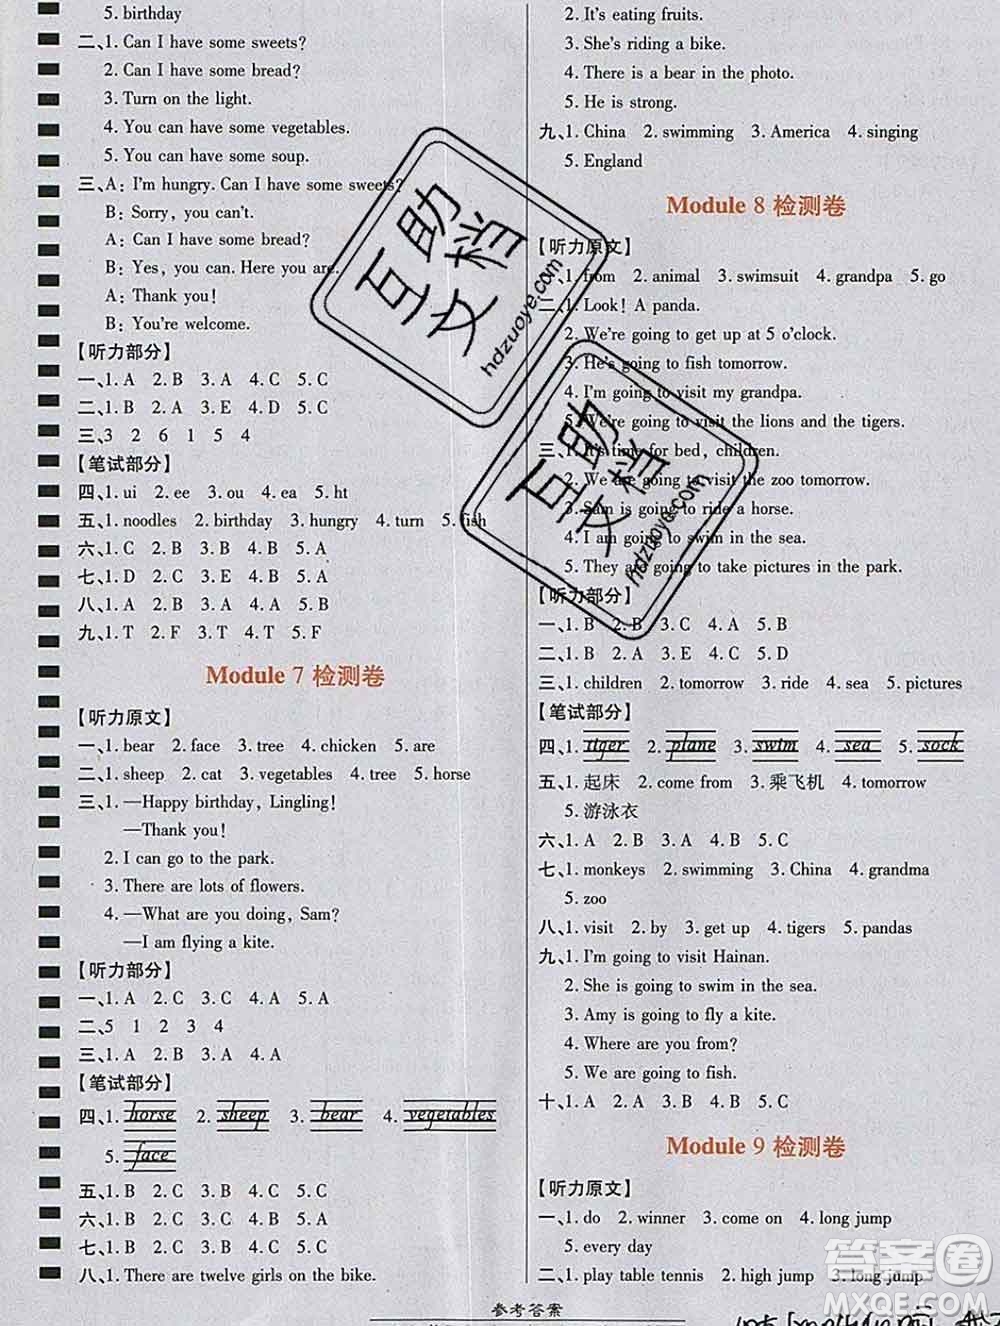 5. birthday
二、1. Can I have some sweets?
2. Can I have some bread?
3. Turn on the light.
4. You can have some vegetables.
5. You can have some soup.
三、A: I'm hungry. Can I have some sweets?
B: Sorry, you can't.
A: Can I have some bread?
B: Yes, you can. Here you are.
A: Thank you!
B: You're welcome.
【听力部分】
一、1. A 2. B 3. A 4. C 5. C
二、1. B 2. A 3. E 4. D 5. C
三、3 2 6 1 5 4
【笔试部分】
四、1. ui 2. ee 3. ou 4. ea 5. ht
五、1. noodles 2. birthday 3. hungry 4. turn 5. fish
六、1. C 2. B 3. C 4. B 5. A
七、1. D 2. C 3. E 4. B 5. A
八、1. A 2. C 3. B 4. A 5. B
九、1. T 2. F 3. T 4. T 5. F
Module 7 检测卷
【听力原文】
一、1. bear 2. face 3. tree 4. chicken 5. are
二、1. sheep 2. cat 3. vegetables 4. tree 5. horse
三、1. —Happy birthday, Lingling!
—Thank you!
2. I can go to the park.
3. There are lots of flowers.
4. —What are you doing, Sam?
—I am flying a kite.
【听力部分】
一、1. A 2. C 3. C 4. A 5. A
二、5 1 2 3 4
三、1. A 2. B 3. A 4. A
【笔试部分】
四、1. horse 2. sheep 3. bear 4. vegetables
5. face
五、1. B 2. C 3. C 4. B 5. B
六、1. B 2. C 3. B 4. A 5. A
七、1. B 2. C 3. C 4. B 5. B
八、1. There are twelve girls on the bike.
2. It's eating fruits.
3. She's riding a bike.
4. There is a bear in the photo.
5. He is strong.
九、1. China 2. swimming 3. America 4. singing
5. England
Module 8 检测卷
【听力原文】
一、1. from 2. animal 3. swimsuit 4. grandpa 5. go
二、1. Look! A panda.
2. We're going to get up at 5 o'clock.
3. He's going to fish tomorrow.
4. I'm going to visit my grandpa.
5. We're going to visit the lions and the tigers.
三、1. It's time for bed, children.
2. We are going to visit the zoo tomorrow.
3. Sam is going to ride a horse.
4. I am going to swim in the sea.
5. They are going to take pictures in the park.
【听力部分】
一、1. B 2. B 3. C 4. A 5. B
二、1. B 2. A 3. E 4. C 5. D
三、1. children 2. tomorrow 3. ride 4. sea 5. pictures
【笔试部分】
四、1. tiger 2. plane 3. swim 4. sea 5. sock
五、1. 起床 2. come from 3. 乘飞机 4. tomorrow
5. 游泳衣
六、1. A 2. C 3. A 4. B 5. C
七、1. monkeys 2. swimming 3. China 4. grandma
5. zoo
八、1. visit 2. by 3. get up 4. tigers 5. pandas
九、1. I'm going to visit Hainan.
2. She is going to swim in the sea.
3. Amy is going to fly a kite.
4. Where are you from?
5. We are going to fish.
十、1. A 2. C 3. A 4. B 5. C
Module 9 检测卷
【听力原文】
一、1. do 2. winner 3. come on 4. long jump
5. every day
二、1. play table tennis 2. high jump 3. long jump
参考答案
互助文档
hdzuoye.com
互助文档
hdzuoye.com
答案圈
MXQE.COM